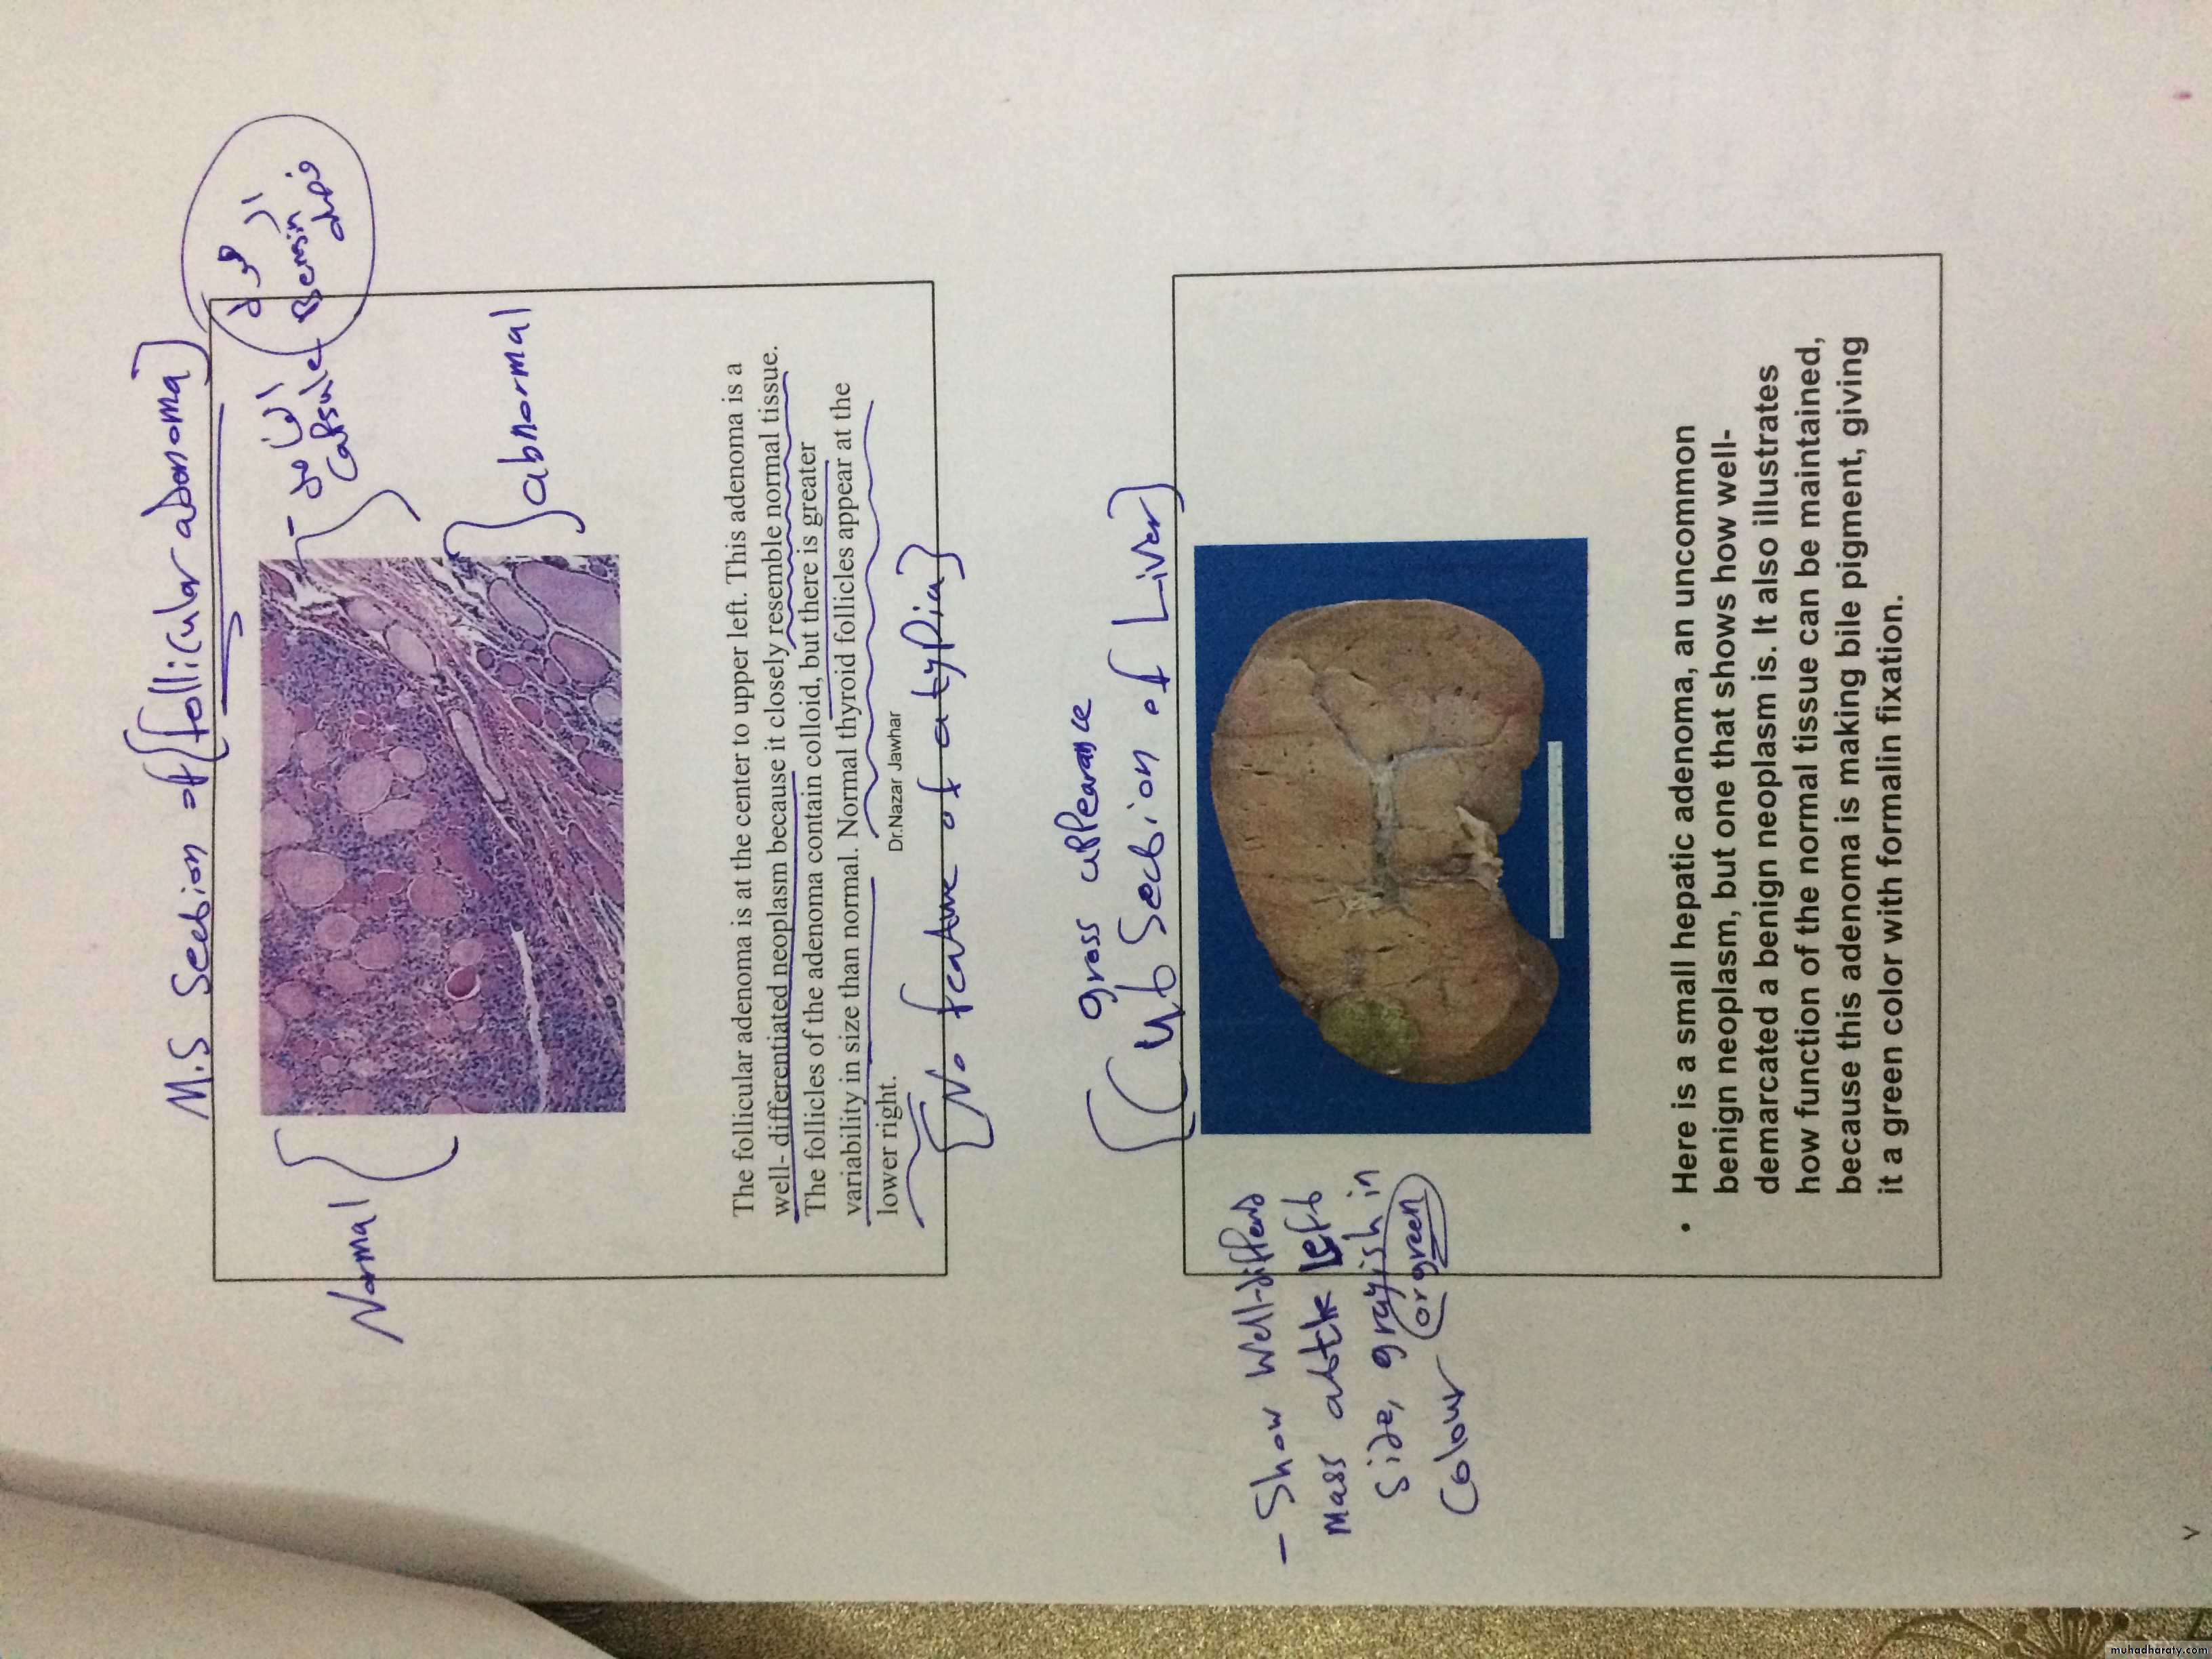 M.S Section of {follicular adonoma}
Normal
capsule
Benign
abnormal
The follicular adenoma is at the center to upper left. This adenoma is a
well- differentiated neoplasm because it closely resemble normal tissue.
The follicles of the adenoma contain colloid, but there is greater
variability in size than normal. Normal thyroid follicles appear at the
lower right.
Dr.Nazar Jawhar
[No feature of atypia]
gross
Section of Liver]
- Show well-
Mass left
side, grayish in
Colour or green
• Here is a small hepatic adenoma, an uncommon
benign neoplasm, but one that shows how well-
demarcated a benign neoplasm is. It also illustrates
how function of the normal tissue can be maintained,
because this adenoma is making bile pigment, giving
it a green color with formalin fixation.
muhadharaty.com